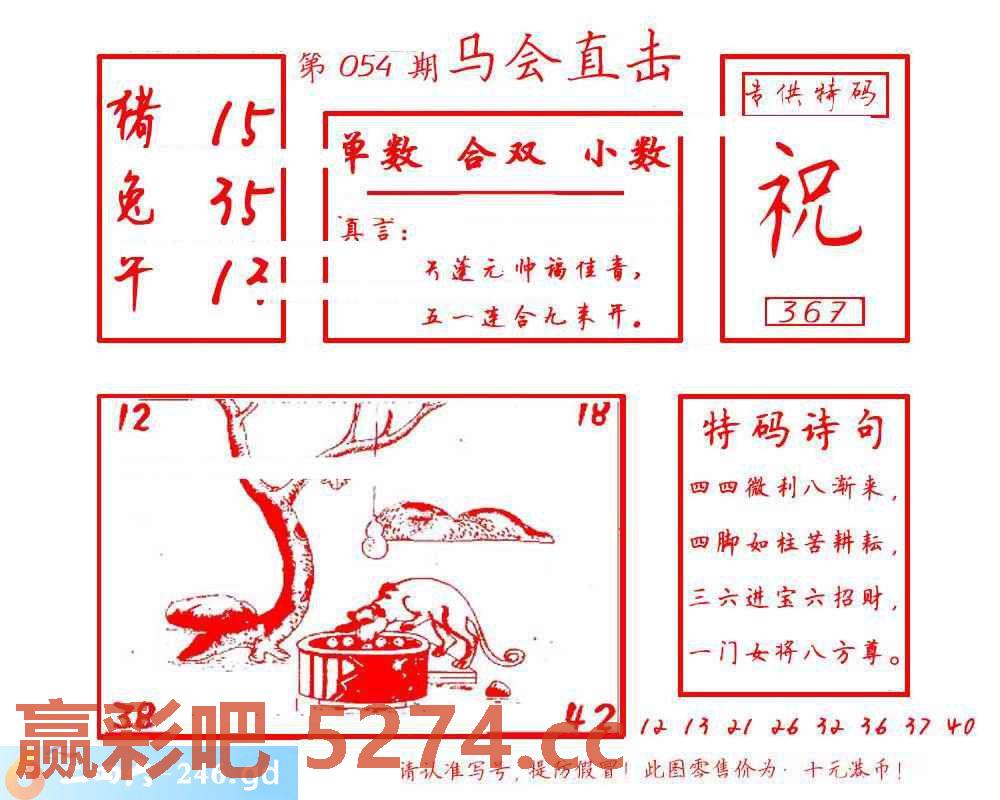 第 054 期 马会直击
猪 15
兔 35
午 12
单数 合双 小数
真言：
天蓬元帅福佳音，
五一连合九来开。
专供特码
祝
367
12 18
38 42
特码诗句
四四微利八渐来，
四脚如柱苦耕耘，
三六进宝六招财，
一门女将八方尊。
12 13 21 26 32 36 37 40
赢彩吧 5274.cc
-246.gd
请认准写号，提防假冒！此图零售价为：十元港币！